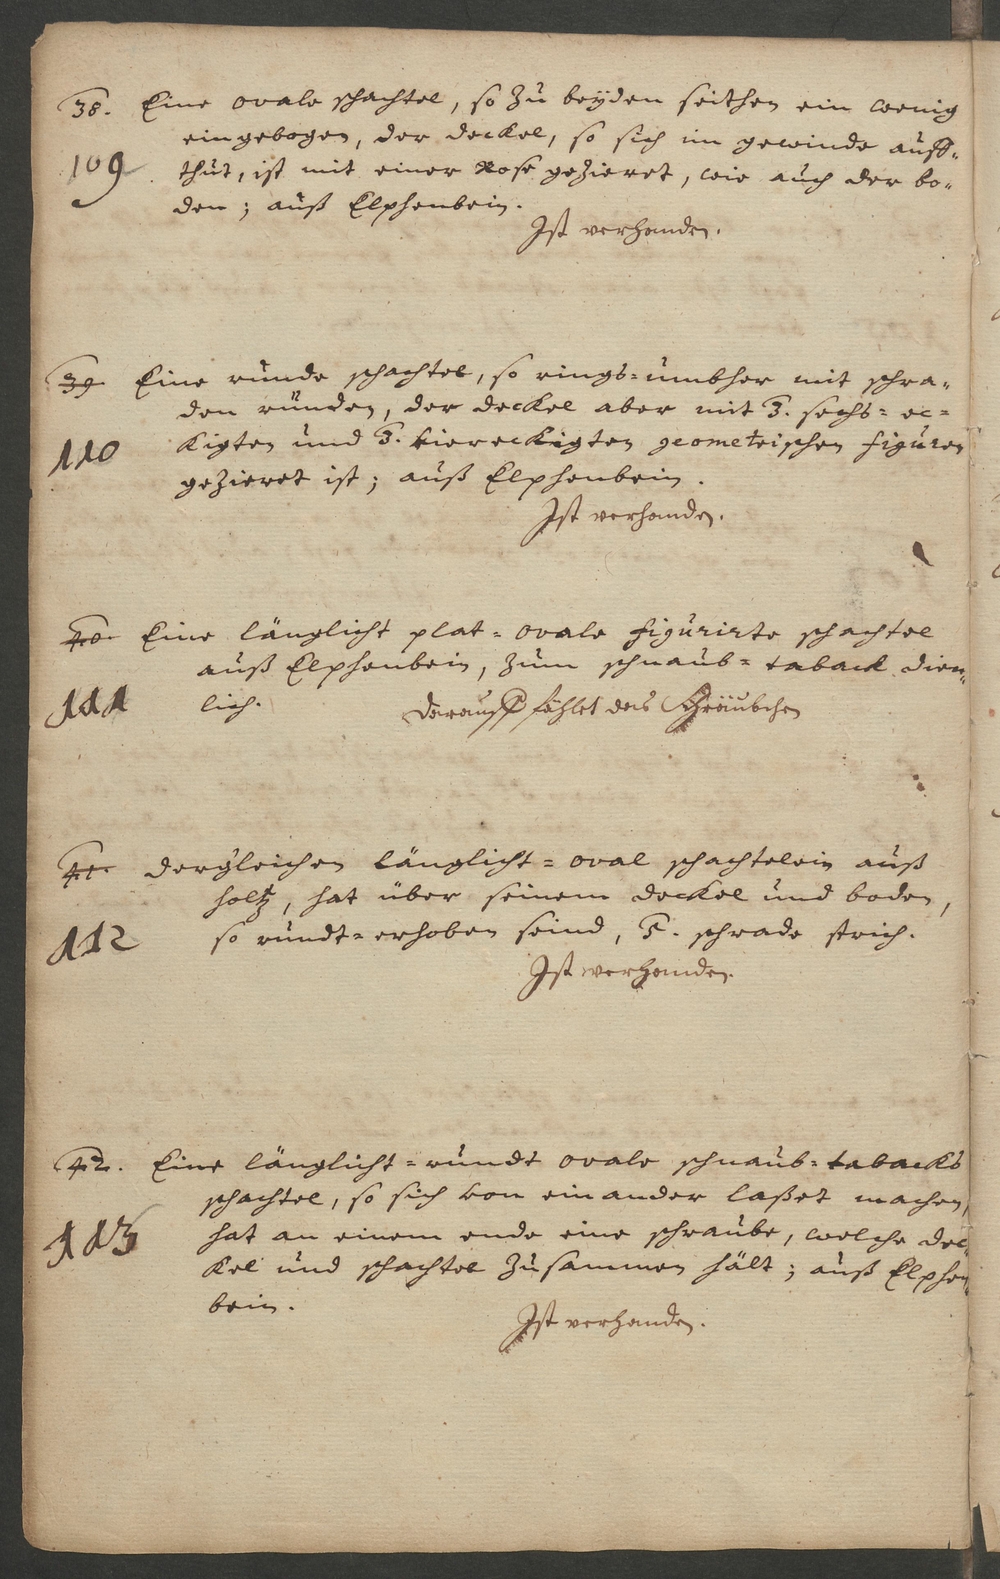 38. Eine ovale schachtel, so zu beÿden seithen ein wenig
eingebogen, der deckel, so sich im gewinde auff-
109 thut, ist mit einer Rose gezieret, wie auch der bo-
den; auß Elphenbein.
Ist verhanden.
39 Eine runde schachtel, so rings=umbher mit schra-
den ründen, der deckel aber mit 3. sechs=ec=
110 kigten und 3. viereckigten geometrischen figuren
gezieret ist; auß Elphenbein.
Ist verhanden.
40. Eine länglicht plat=ovale figurirte schachtel
auß Elphenbein, zum schnaub=taback dien-
111 lich. Darauff fehlet das Schräubchen
41. dergleichen länglicht=oval schachtelein auß
holtz, hat über seinem deckel und boden,
112 so rundt=erhoben seind, 5. schrade strich.
Ist verhanden.
42. Eine länglicht=runde ovale schnaub=tabacks
schachtel, so sich von einander laßet machen,
113 hat an einem ende eine schraube, welche dec-
kel und schachtel zusammen hält; auß Elphen-
bein.
Ist verhanden.